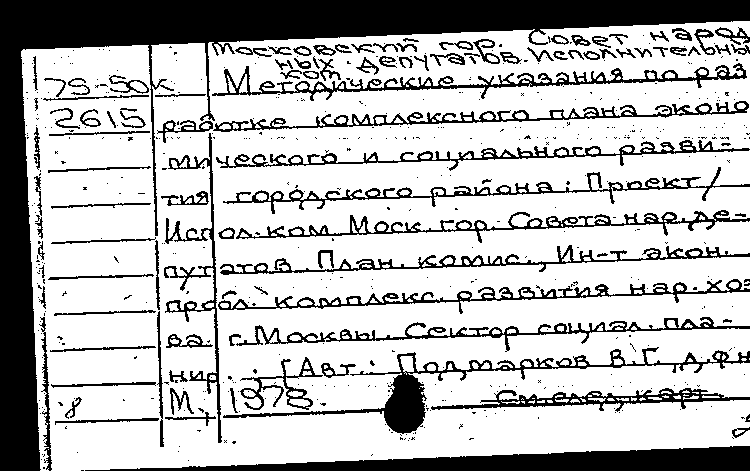 Московский гор. Совет народ
ных депутатов. Исполнительны
ком.
75-50к Методические указания по раз
2615 работке комплексного плана эконо
мического и социального разви-
тия городского района: Проект/
Исполком Моск. гор. Совета нар. де-
путатов. План. комис., Ин-т экон.
пробл. комплекс. развития нар. хоз
ва г. Москвы. Сектор социал. пла-
нир.; [Авт.: Подмарков В.Г., д.ф.н
8 М., 1978. См. след. карт.